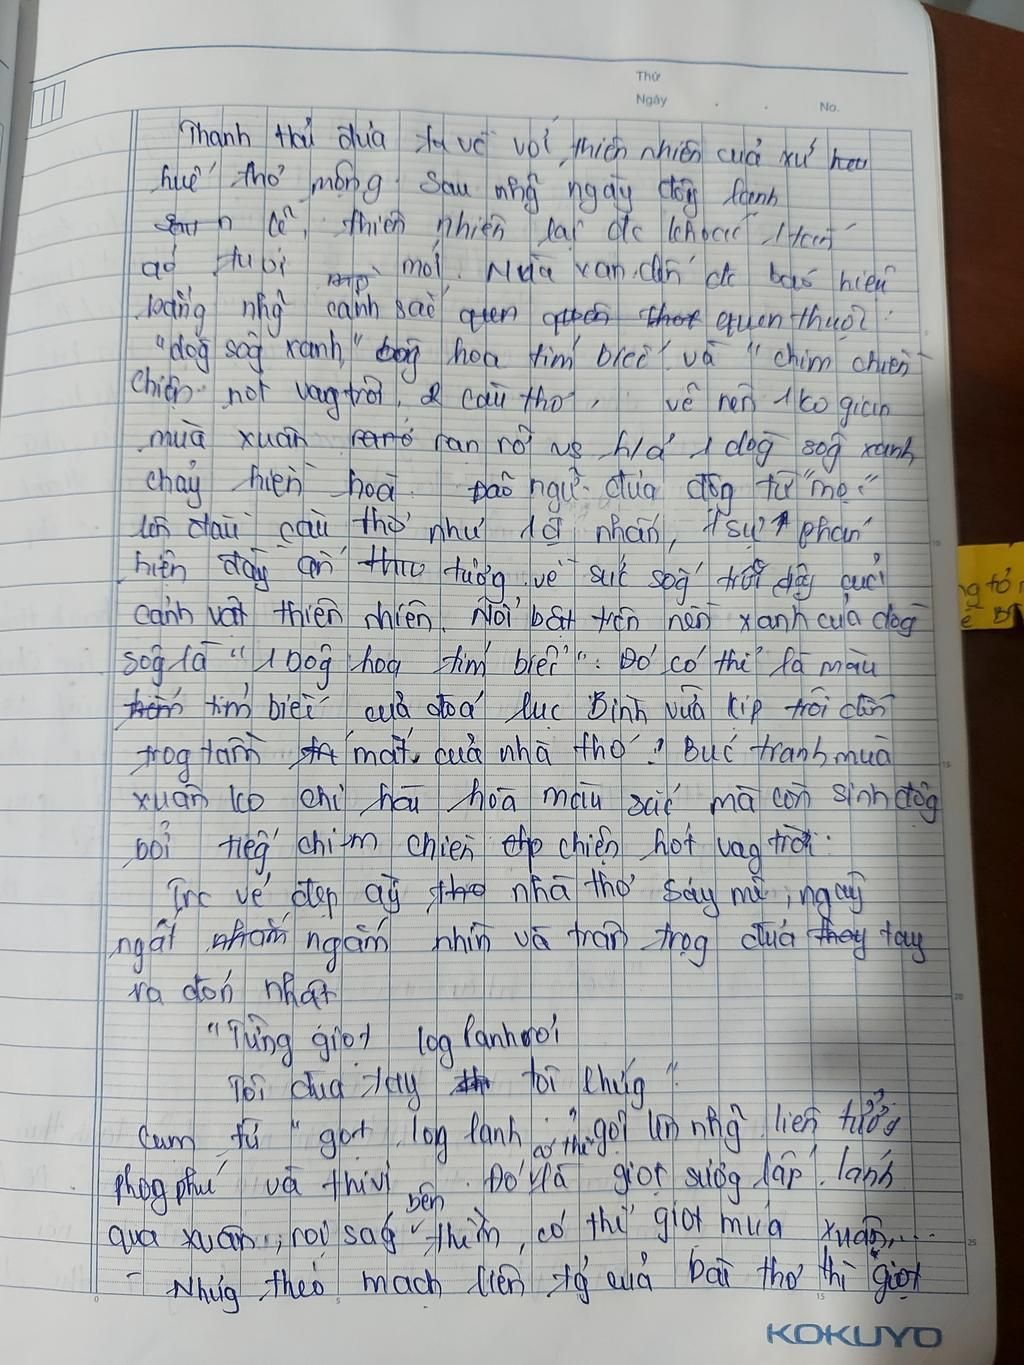 Thứ
Ngày . . No.
Thanh thủ đưa ta về với thiên nhiên của xứ
huế thơ mộng. Sau nhg ngày đôg lạnh
lẽ, thiên nhiên lại đc khoác 1 tấm
áo tươi mới. Mùa xuân đc báo hiệu
bằng nhg cảnh sắc quen thuộc:
"dòg sôg xanh," bôg hoa tím biếc và " chim chiền
chiện hót vang trời, 2 câu thơ, vẽ nên 1 ko gian
mùa xuân rạn rỡ vs h/ả 1 dòg sôg xanh
chảy hiền hoà. Đảo ngữ đưa độg từ "mọc"
lên đầu câu thơ như 1 đ nhấn, 1 sự phát
hiện đầy ấn tượng về sức sốg trỗi dậy của
cảnh vật thiên nhiên. Nổi bật trên nền xanh của dòg
sôg là " 1 bôg hoa tím biếc". Đó có thể là màu
tím biếc của đoá lục Bình vừa kịp trôi dần
trog tầm mắt của nhà thơ! Bức tranh mùa
xuân ko chỉ hài hoà màu sắc mà còn sinh độg
bởi tiếg chim chiền chiện hót vag trời.
Trc vẻ đẹp ấy nhà thơ sáy mê, ngây
ngất ngắm nhìn và trân trọg đưa tay
ra đón nhận
"Từng giọt log lanh rơi
Tôi đưa tay tôi hứng"
Cụm từ " giọt log lanh " có thể gợi lên nhg liên tưởg
phog phú và thi vị. Đó là giọt sươg lấp lánh
qua xuân, rơi sag bên thềm, có thể giọt mưa xuân,...
- Nhưg theo mạch liên tg của bài thơ thì giọt
KOKUYO